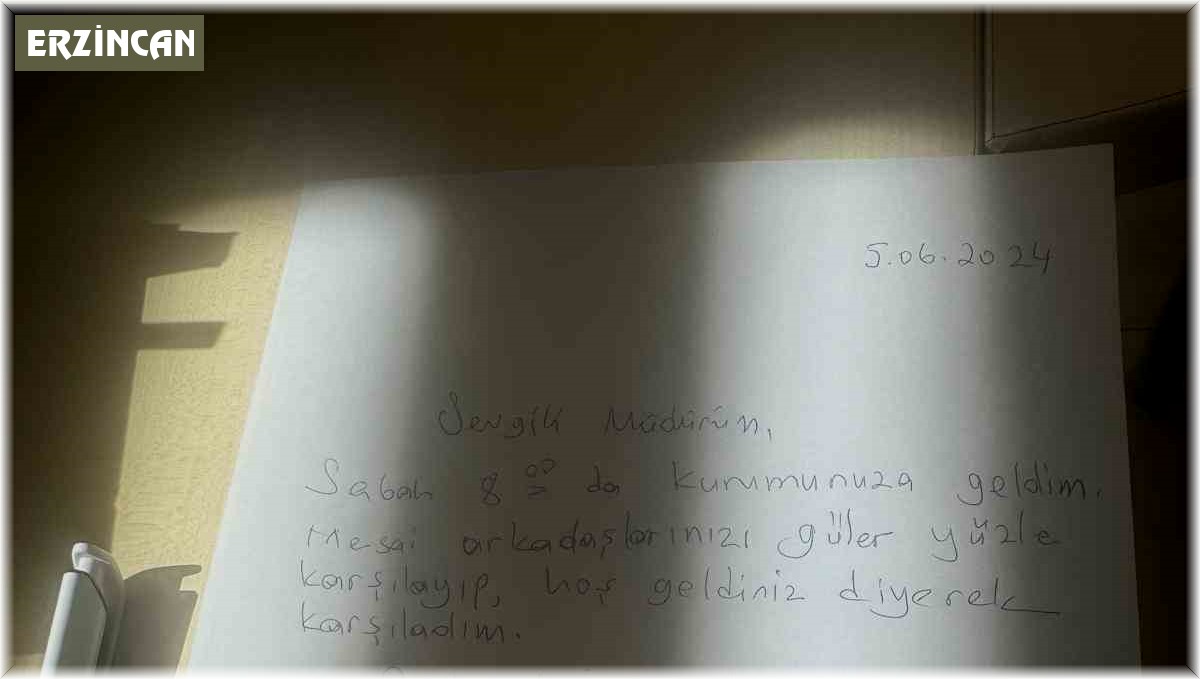 ERZİNCAN
5.06.2024
Sevgili Müdürüm,
Sabah 8 00 da kurumunuza geldim.
Mesai arkadaşlarınızı güler yüzle
karşılayıp, hoş geldiniz diyerek
karşıladım.